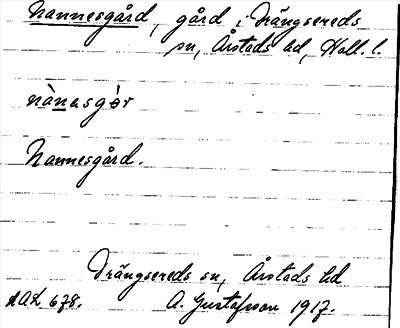 Nannesgård, gård i Drängsereds
sn, Årstads hd, Hall. l.
nànasgər
Nannesgård.
Drängsereds sn, Årstads hd
AAL 678. A. Gustafsson 1917.